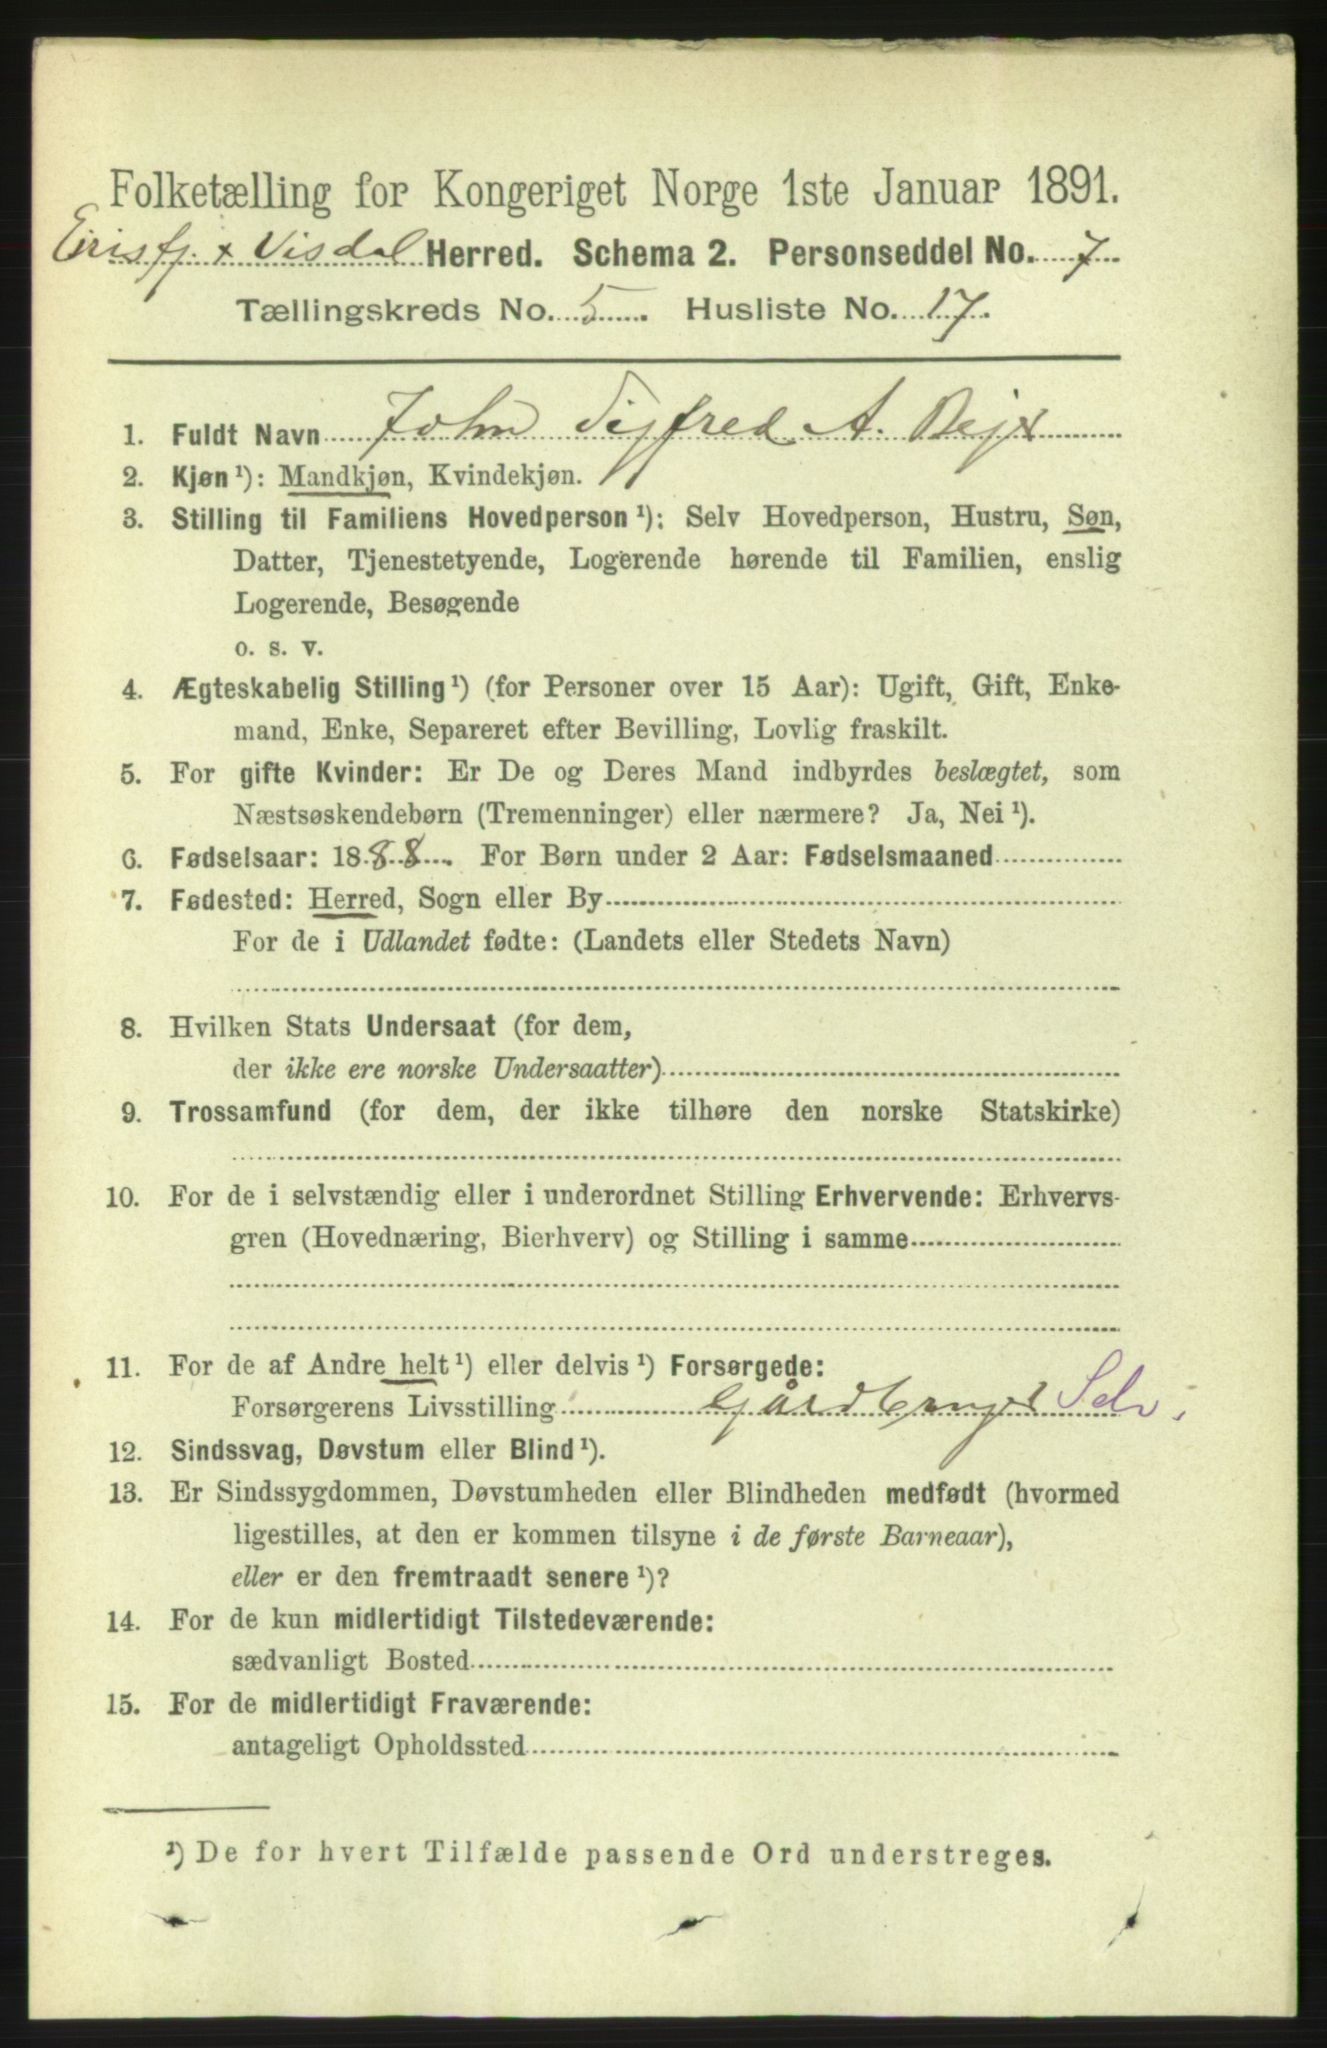 Folketælling for Kongeriget Norge 1ste Januar 1891.
Eirisfj. & Visdal Herred. Schema 2. Personseddel No. 7
Tællingskreds No. 5. Husliste No. 17.
1. Fuldt Navn John Sigfred A.
2. Kjøn ¹): Mandkjøn, Kvindekjøn.
3. Stilling til Familiens Hovedperson ¹): Selv Hovedperson, Hustru, Søn,
Datter, Tjenestetyende, Logerende hørende til Familien, enslig
Logerende, Besøgende
o. s. v.
4. Ægteskabelig Stilling ¹) (for Personer over 15 Aar): Ugift, Gift, Enke-
mand, Enke, Separeret efter Bevilling, Lovlig fraskilt.
5. For gifte Kvinder: Er De og Deres Mand indbyrdes beslægtet, som
Næstsøskendebørn (Tremenninger) eller nærmere? Ja, Nei ¹).
6. Fødselsaar: 1888. For Børn under 2 Aar: Fødselsmaaned
7. Fødested: Herred, Sogn eller By
For de i Udlandet fødte: (Landets eller Stedets Navn)
8. Hvilken Stats Undersaat (for dem,
der ikke ere norske Undersaatter)
9. Trossamfund (for dem, der ikke tilhøre den norske Statskirke)
10. For de i selvstændig eller i underordnet Stilling Erhvervende: Erhvervs-
gren (Hovednæring, Bierhverv) og Stilling i samme
11. For de af Andre helt ¹) eller delvis ¹) Forsørgede:
Forsørgerens Livsstilling Gårdbruger Selv.
12. Sindssvag, Døvstum eller Blind ¹).
13. Er Sindssygdommen, Døvstumheden eller Blindheden medfødt (hvormed
ligestilles, at den er kommen tilsyne i de første Barneaar),
eller er den fremtraadt senere ¹)?
14. For de kun midlertidigt Tilstedeværende:
sædvanligt Bosted
15. For de midlertidigt Fraværende:
antageligt Opholdssted
¹) De for hvert Tilfælde passende Ord understreges.